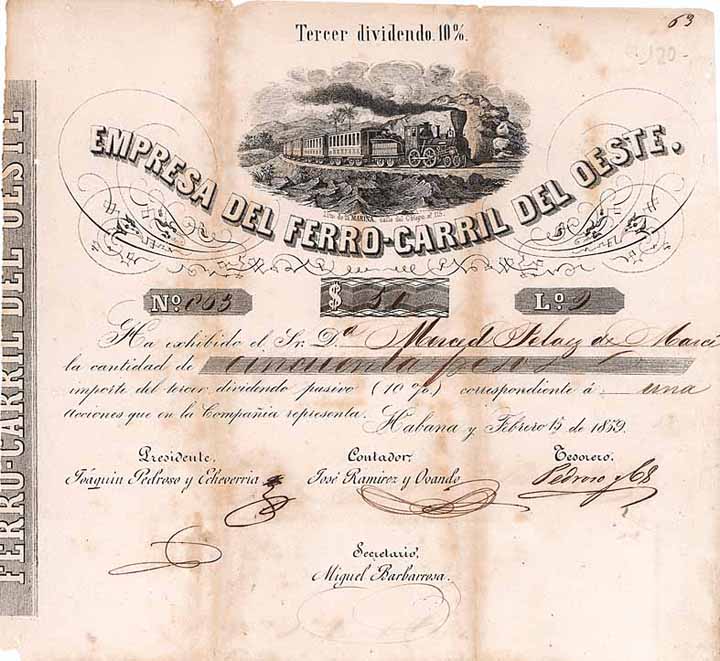 63
120-
Tercer dividendo. 10%.
EMPRESA DEL FERRO-CARRIL DEL OESTE.
Lito. de la MARINA, calle del Obispo nº 115.
FERRO-CARRIL DEL OESTE
Nº 063 $ 50 Lº 2
Ha exhibido el Sr. Dª Merced Pelaez de
la cantidad de cincuenta pesos
importe del tercer dividendo pasivo (10 %.) correspondiente á una
acciones que en la Compañia representa.
Habana y Febrero 15 de 1859.
Presidente. Contador. Tesorero.
Joaquin Pedroso y Echeverria José Ramirez y Ovando Pedroso y Cª
Secretario.
Miguel Barbarrosa.